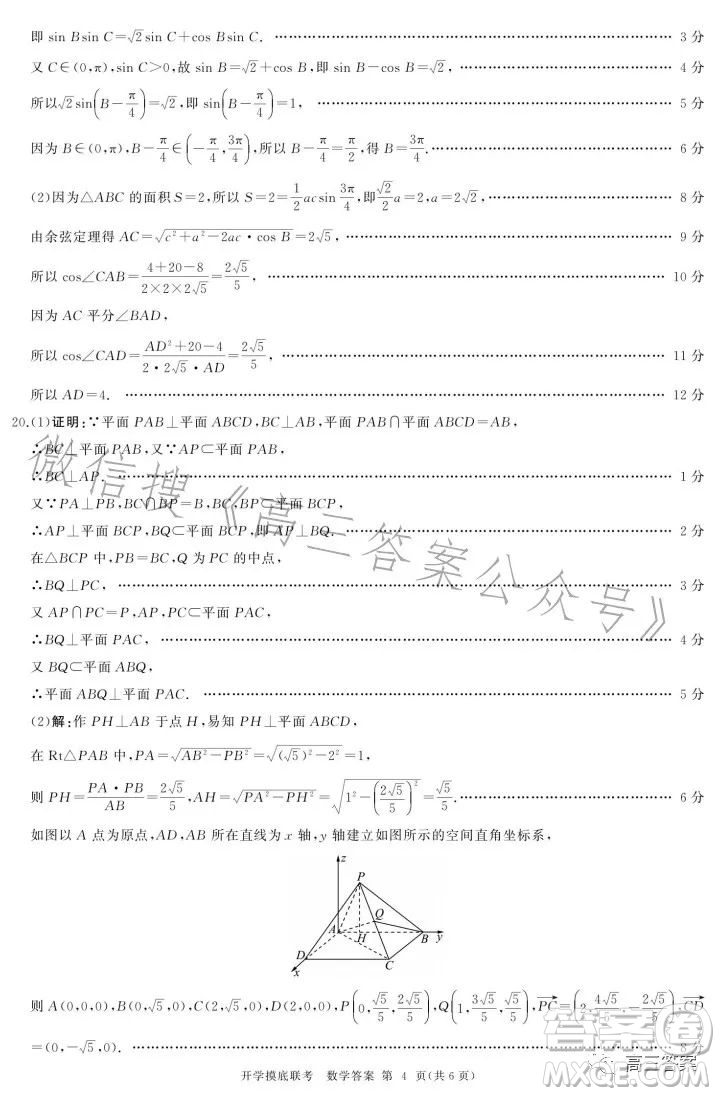 即 sin Bsin C=√2sin C+cos Bsin C. …… 3 分
又 C∈(0,π),sin C>0,故 sin B=√2+cos B,即 sin B-cos B=√2, …… 4 分
所以√2sin(B-π/4)=√2,即 sin(B-π/4)=1, …… 5 分
因为 B∈(0,π),B-π/4∈(-π/4,3π/4),所以 B-π/4=π/2,得 B=3π/4. …… 6 分
(2)因为△ABC 的面积 S=2,所以 S=2=1/2acsin 3π/4,即√2/2a=2,a=2√2, …… 8 分
由余弦定理得 AC=√(c²+a²-2ac·cos B)=2√5, …… 9 分
所以 cos∠CAB=(4+20-8)/(2×2×2√5)=2√5/5, …… 10 分
因为 AC 平分∠BAD,
所以 cos∠CAD=(AD²+20-4)/(2·2√5·AD)=2√5/5, …… 11 分
所以 AD=4. …… 12 分
20.(1)证明:∵平面 PAB⊥平面 ABCD,BC⊥AB,平面 PAB∩平面 ABCD=AB,
∴BC⊥平面 PAB,又∵AP⊂平面 PAB,
∴BC⊥AP. …… 1 分
又∵PA⊥PB,BC∩BP=B,BC,BP⊂平面 BCP,
∴AP⊥平面 BCP,BQ⊂平面 BCP,即 AP⊥BQ. …… 2 分
在△BCP 中,PB=BC,Q 为 PC 的中点,
∴BQ⊥PC, …… 3 分
又 AP∩PC=P,AP,PC⊂平面 PAC,
∴BQ⊥平面 PAC, …… 4 分
又 BQ⊂平面 ABQ,
∴平面 ABQ⊥平面 PAC. …… 5 分
(2)解:作 PH⊥AB 于点 H,易知 PH⊥平面 ABCD,
在 Rt△PAB 中,PA=√(AB²-PB²)=√((√5)²-2²)=1,
则 PH=PA·PB/AB=2√5/5,AH=√(PA²-PH²)=√(1²-(2√5/5)²)=√5/5. …… 6 分
如图以 A 点为原点,AD,AB 所在直线为 x 轴,y 轴建立如图所示的空间直角坐标系,
z
P
Q
A
H
B
y
D
C
x
则 A(0,0,0),B(0,√5,0),C(2,√5,0),D(2,0,0),P(0,√5/5,2√5/5),Q(1,3√5/5,√5/5),PC=(2,4√5/5,-2√5/5),CD
=(0,-√5,0). …… 8 分
开学摸底联考 数学答案 第 4 页(共 6 页)
微信搜《高三答案公众号》
答案圈
高三答案